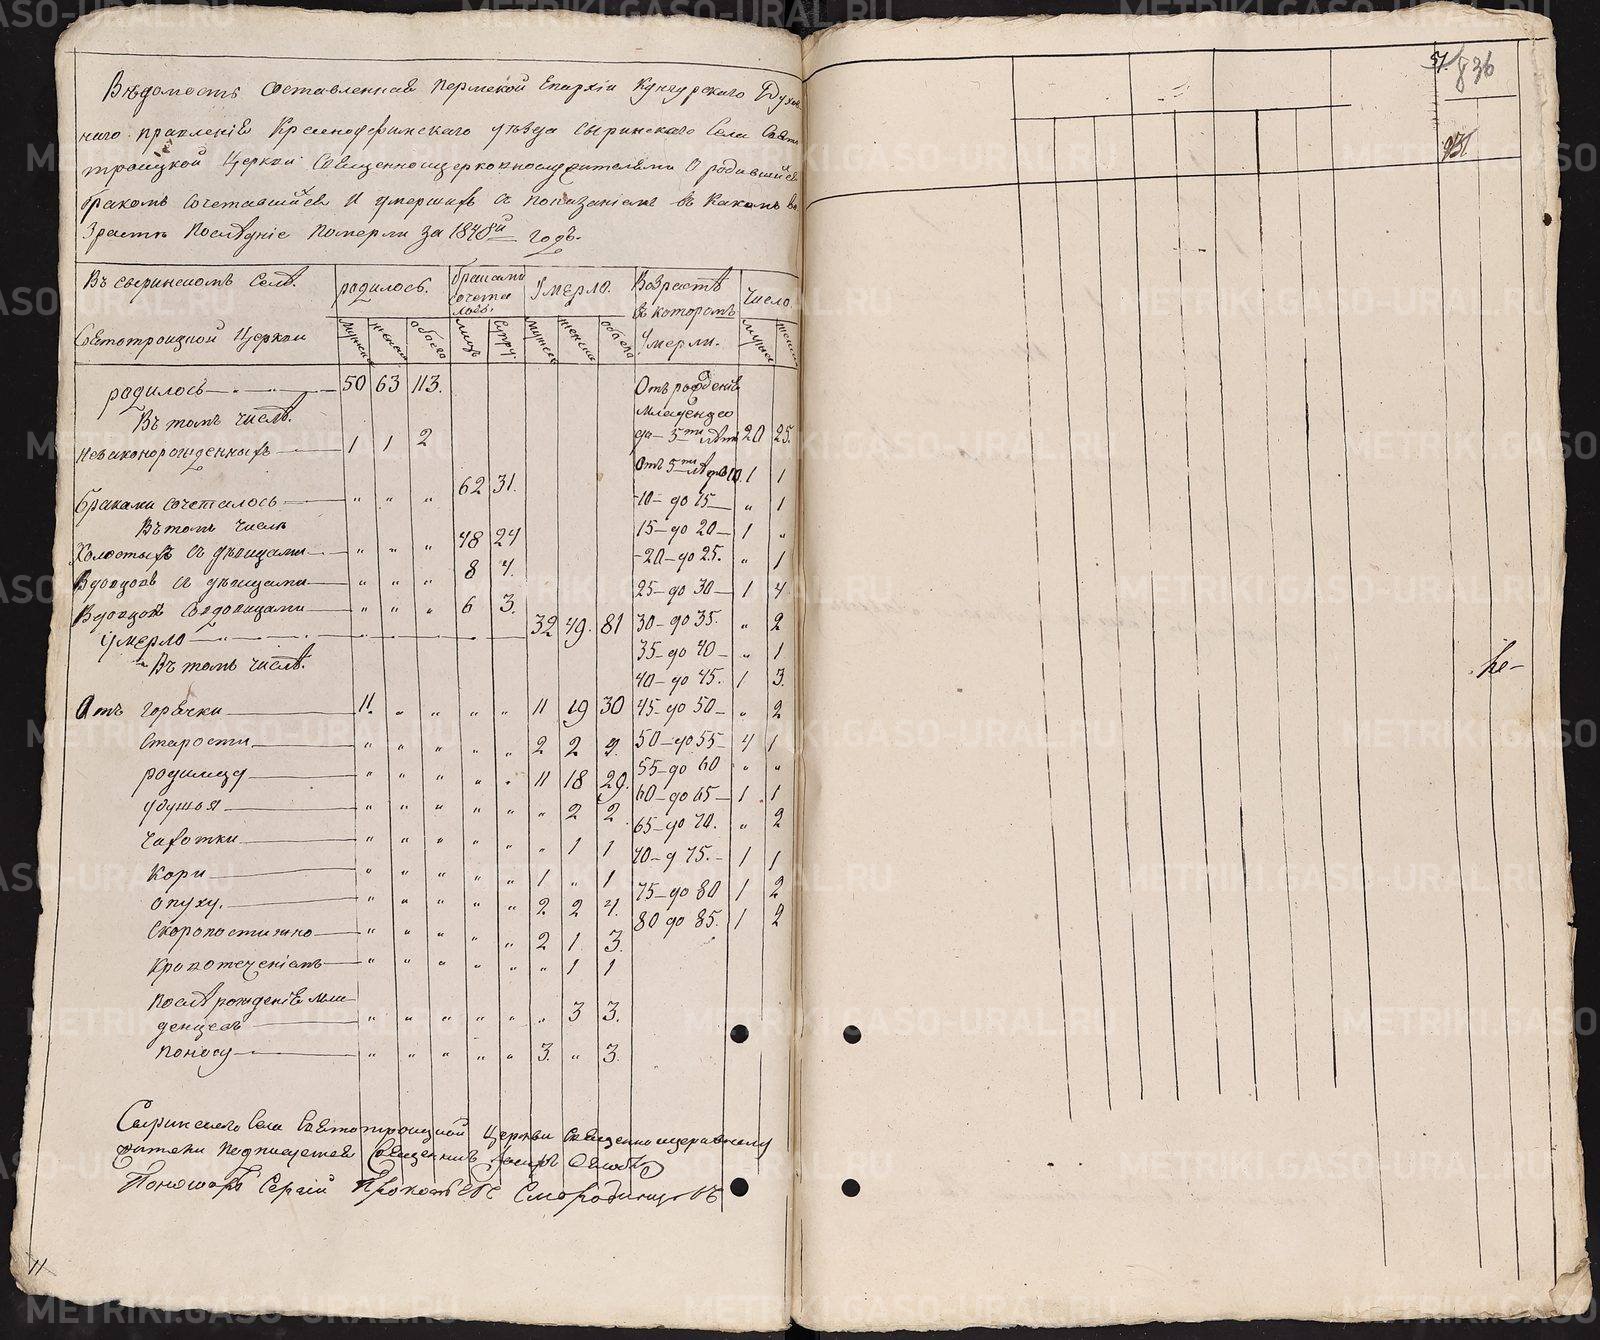 Вѣдомость Составленная Пермской Епархіи Кунгурскаго Духов
наго правленія Красноуфимскаго уѣзда Сыринскаго Села Свято
троицкой Церкви Священноцерковнослужителями О родившихся
бракомъ сочетавшихся и умершихъ съ показаніемъ въ какомъ во
зрастѣ Послѣдніе Померли за 1848й годъ.
Въ сыринскомъ Селѣ. родилось. браками сочета лось. Умерло. Возрастъ въ которомъ Умерли. Число
Святотроицкой Церкви мужска женска обоего лицъ супру. мужска женска обоего мужска женска
родилось 50 63 113. Отъ рожденія
Въ томъ числѣ. младенцо
незаконорожденныхъ 1 1 2 до 5ти лѣтъ 20 25.
Отъ 5ти лѣтъ до 10. 1 1
браками сочеталось " " " 62 31. 10 до 15 " 1
Въ томъ числѣ 15 до 20 1 "
Холостыхъ съ дѣвицами " " " 48 24 20 до 25. " 1
Вдовцовъ съ дѣвицами " " " 8 4. 25 до 30 1 4
Вдовцовъ съ вдовицами " " " 6 3. 30 до 35. " 2
Умерло 32 49. 81 35 до 40 " 1
Въ томъ числѣ. 40 до 45. 1 3.
Отъ горячки 11. " " " " 11 19 30 45 до 50 " 2
Старости " " " " " 2 2 4. 50 до 55 4 1
родимца " " " " " 11 18 29. 55 до 60 " "
удушья " " " " " " 2 2. 60 до 65 1 1
чахотки " " " " " " 1 1 65 до 70. " 2
Кори " " " " " 1 " 1 70 д 75. 1 1
опуху. " " " " " 2 2 4. 75 до 80 1 2
Скоропостижно " " " " " 2 1 3. 80 до 85. 1 2
Кровотеченіемъ " " " " " " 1 1
Послѣ рожденія мла
денцевъ " " " " " " 3 3.
Поносу " " " " " 3. " 3.
Сыринскаго Села Святотроицкой Церкви Священноцерковнослу
жители подписуемся Священникъ
Пономарь Сергій Прокопьевъ Смородинцовъ
11
51. 836
931
не-
METRIKI.GASO-URAL.RU